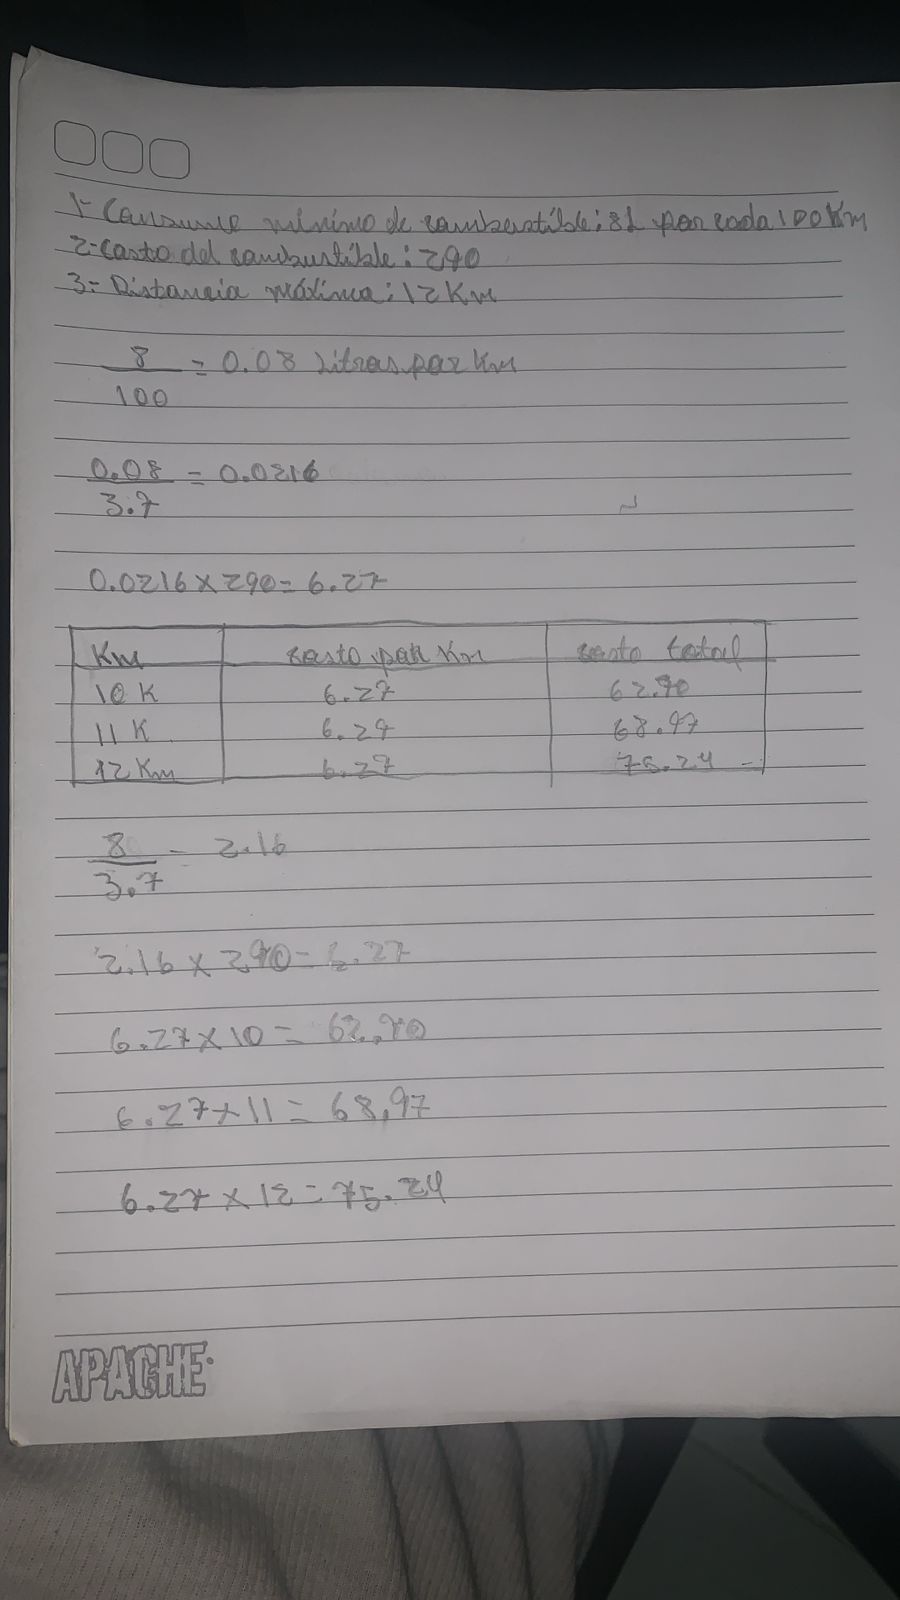 1- Consumo mínimo de combustible: 8L por cada 100 Km
2- Costo del combustible: 290
3- Distancia máxima: 12 Km
8
100
= 0.08 Litros por Km
0.08
3.7
= 0.0216
0.0216 x 290 = 6.27
Km costo por Km costo total
10 K 6.27 62.70
11 K 6.27 68.97
12 Km 6.27 75.24
8
3.7
- 2.16
2.16 x 290 = 6.27
6.27 x 10 = 62.70
6.27 x 11 = 68,97
6.27 x 12 = 75.24
APACHE